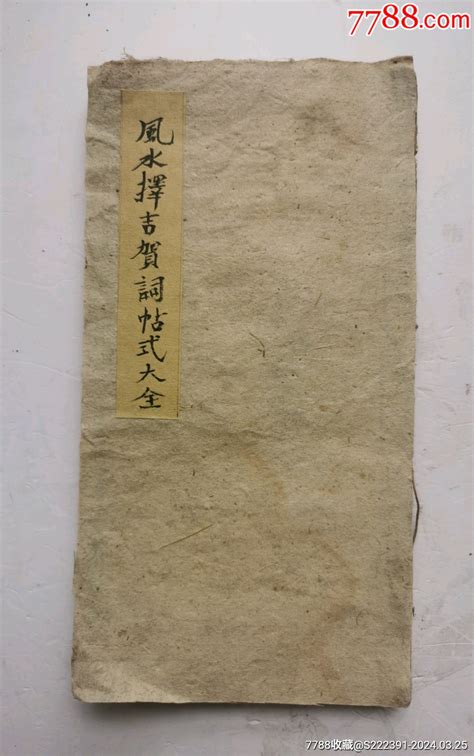 7788.com
風水擇吉賀詞帖式大全
7788收藏@S222391-2024.03.25